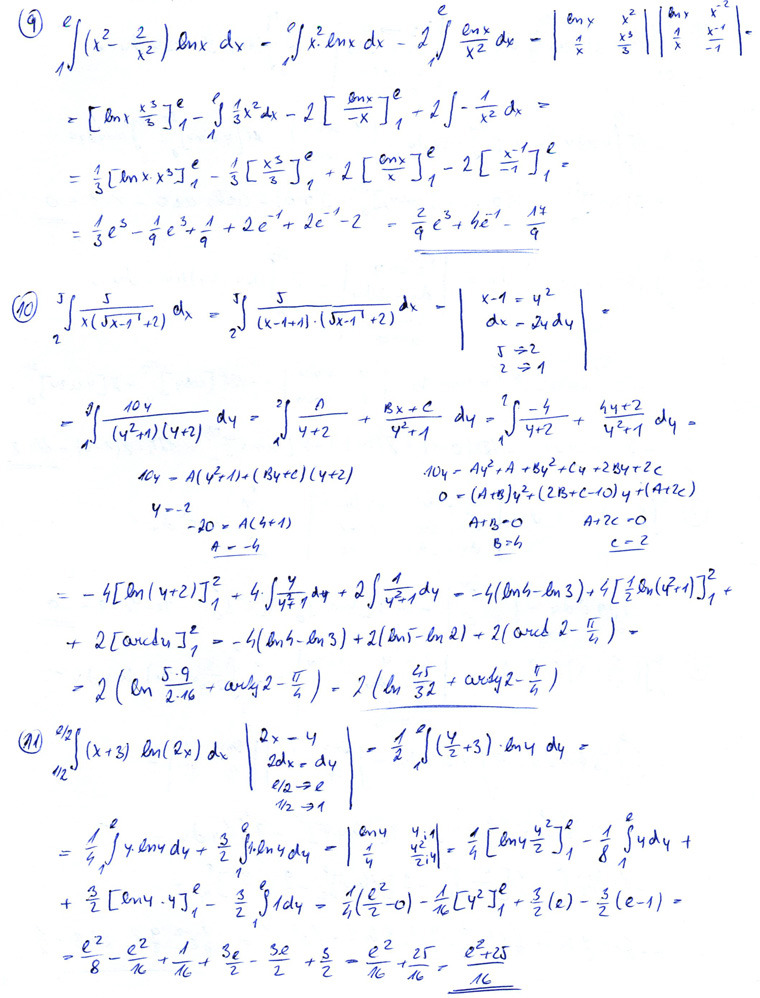 9) ₁∫ᵉ (x² − 2/x²) ln x dx = ₁∫ᵉ x² ln x dx − 2 ₁∫ᵉ ln x/x² dx = | ln x  x² ; 1/x  x³/3 | | ln x  x⁻² ; 1/x  x⁻¹/−1 | =
= [ln x x³/3]₁ᵉ − ₁∫ᵉ 1/3 x² dx − 2 [ln x/−x]₁ᵉ + 2 ∫ − 1/x² dx =
= 1/3 [ln x · x³]₁ᵉ − 1/3 [x³/3]₁ᵉ + 2 [ln x/x]₁ᵉ − 2 [x⁻¹/−1]₁ᵉ =
= 1/3 e³ − 1/9 e³ + 1/9 + 2e⁻¹ + 2e⁻¹ − 2 = 2/9 e³ + 4e⁻¹ − 17/9
10) ₂∫⁵ 5/(x(√(x−1) + 2)) dx = ₂∫⁵ 5/((x−1+1)·(√(x−1) + 2)) dx = | x−1 = y² ; dx = 2y dy ; 5 → 2 ; 2 → 1 | =
= ₁∫² 10y/((y²+1)(y+2)) dy = ₁∫² A/(y+2) + (Bx+C)/(y²+1) dy = ₁∫² −4/(y+2) + (4y+2)/(y²+1) dy =
10y = A(y²+1) + (By+C)(y+2)   10y = Ay² + A + By² + Cy + 2By + 2C
y = −2   0 = (A+B)y² + (2B+C−10)y + (A+2C)
−20 = A(4+1)   A+B=0   A+2C=0
A = −4   B=4   C=2
= −4[ln(y+2)]₁² + 4·∫ y/(y²+1) dy + 2∫ 1/(y²+1) dy = −4(ln4−ln3) + 4[1/2 ln(y²+1)]₁² +
+ 2[arctg y]₁² = −4(ln4−ln3) + 2(ln5−ln2) + 2(arct 2 − π/4) =
= 2(ln 5·9/2·16 + arctg2 − π/4) = 2(ln 45/32 + arctg2 − π/4)
11) ₁/₂∫ᵉ/² (x+3) ln(2x) dx | 2x = y ; 2dx = dy ; e/2 → e ; 1/2 → 1 | = 1/2 ₁∫ᵉ (y/2 + 3)·ln y dy =
= 1/4 ₁∫ᵉ y·ln y dy + 3/2 ₁∫ᵉ 1·ln y dy = | ln y  y;1 ; 1/y  y²/2;y | = 1/4 [ln y y²/2]₁ᵉ − 1/8 ₁∫ᵉ y dy +
+ 3/2 [ln y · y]₁ᵉ − 3/2 ₁∫ᵉ 1 dy = 1/4(e²/2 − 0) − 1/16 [y²]₁ᵉ + 3/2(e) − 3/2(e−1) =
= e²/8 − e²/16 + 1/16 + 3e/2 − 3e/2 + 3/2 = e²/16 + 25/16 = (e²+25)/16